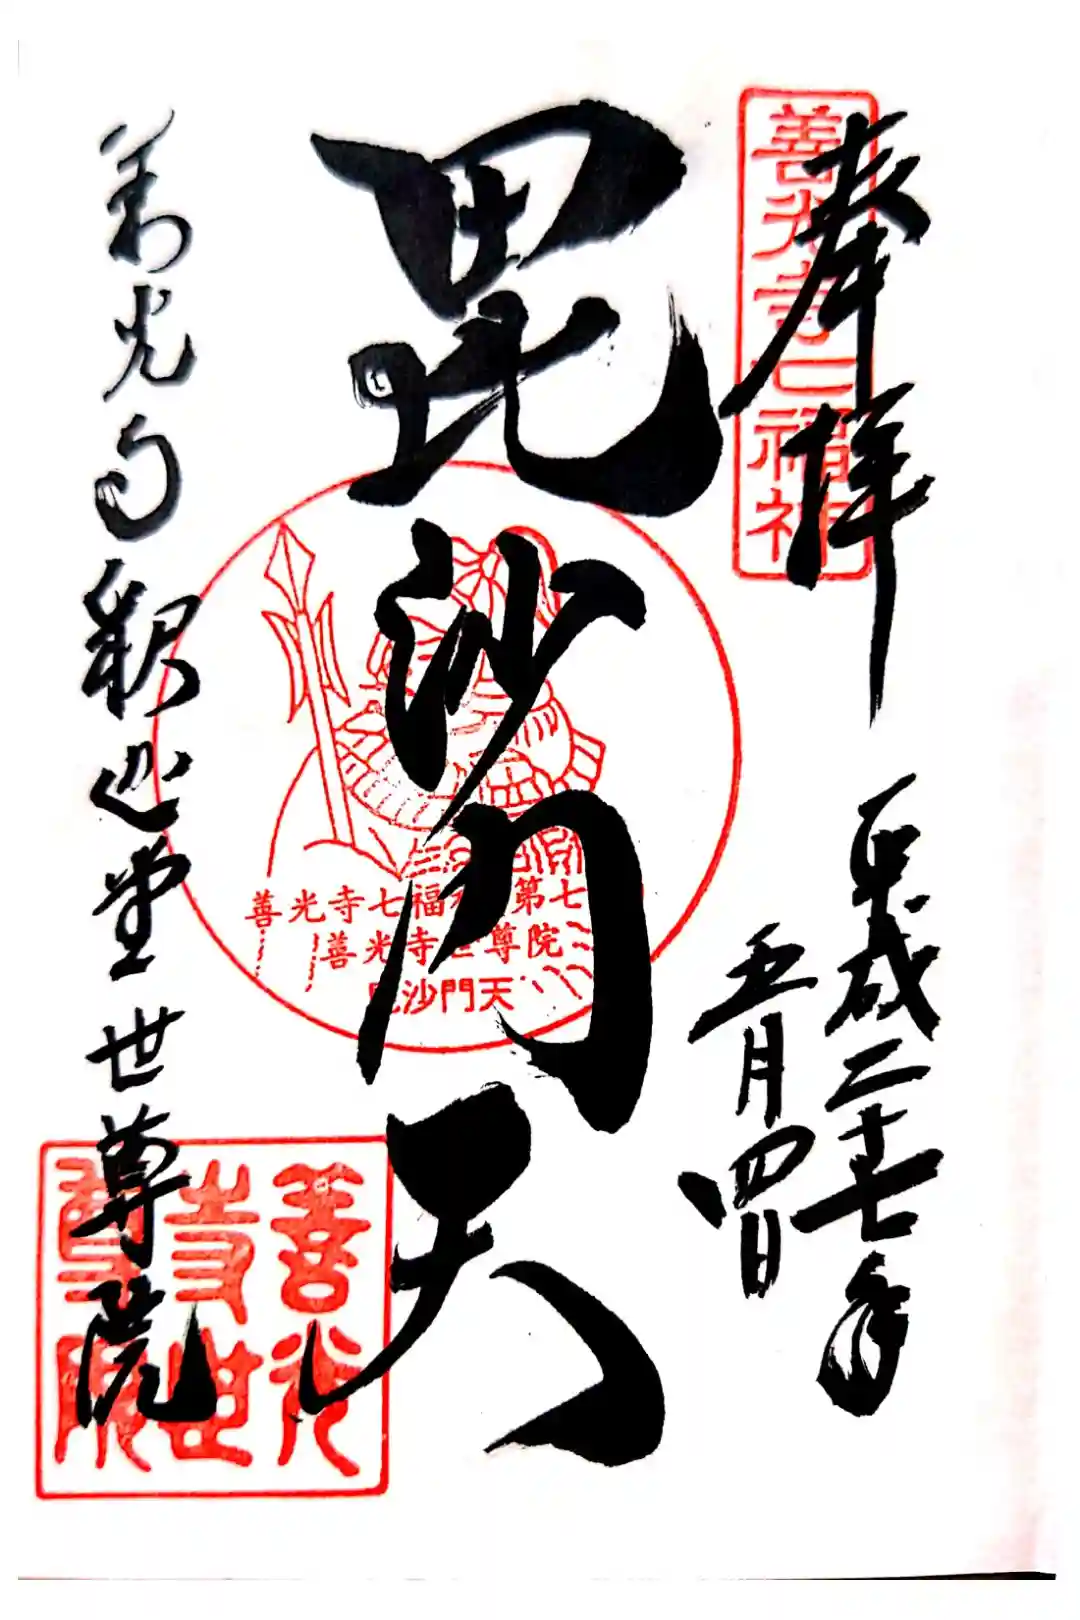 奉拝
善光寺七福神
平成二十七年
五月四日
毘沙門天
善光寺七福神 第七
善光寺世尊院
毘沙門天
善光寺釈迦堂世尊院
善光
寺世
尊院